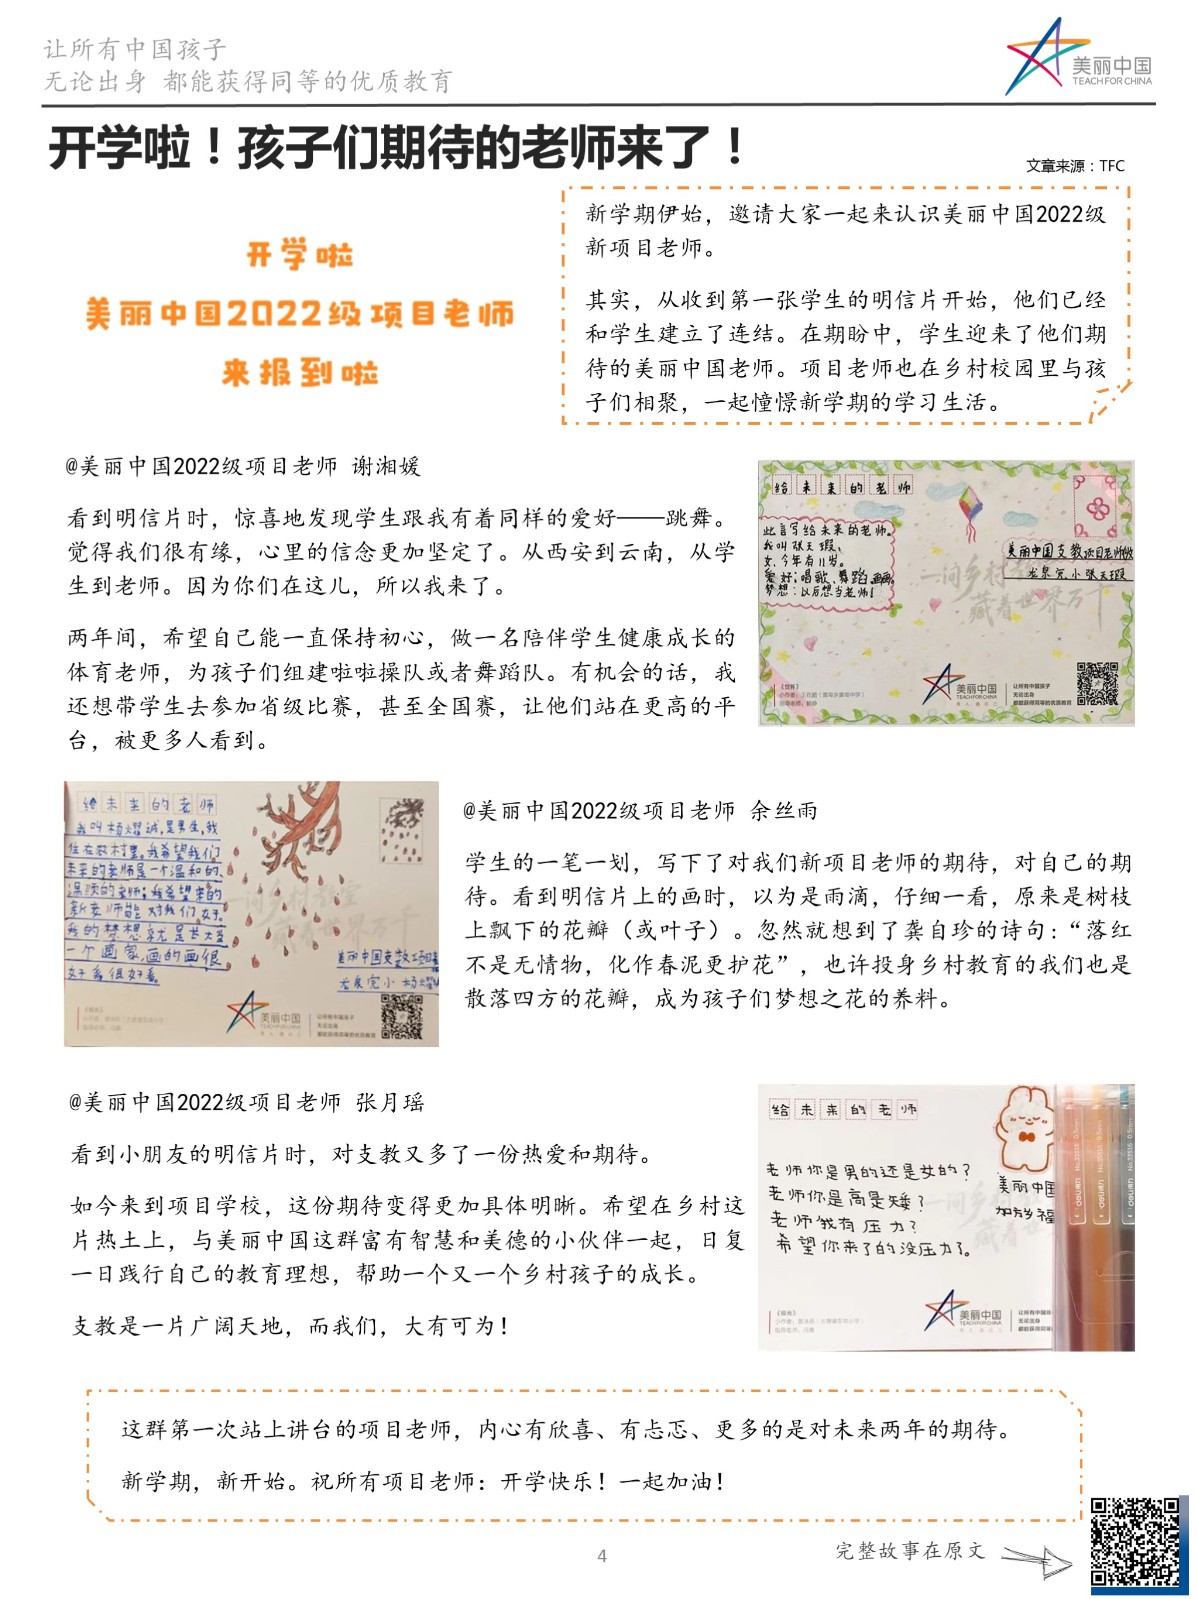 让所有中国孩子
无论出身 都能获得同等的优质教育
美丽中国
TEACH FOR CHINA
开学啦！孩子们期待的老师来了！
文章来源：TFC
开学啦
美丽中国2022级项目老师
来报到啦
新学期伊始，邀请大家一起来认识美丽中国2022级
新项目老师。
其实，从收到第一张学生的明信片开始，他们已经
和学生建立了连结。在期盼中，学生迎来了他们期
待的美丽中国老师。项目老师也在乡村校园里与孩
子们相聚，一起憧憬新学期的学习生活。
@美丽中国2022级项目老师 谢湘媛
看到明信片时，惊喜地发现学生跟我有着同样的爱好——跳舞。
觉得我们很有缘，心里的信念更加坚定了。从西安到云南，从学
生到老师。因为你们在这儿，所以我来了。
两年间，希望自己能一直保持初心，做一名陪伴学生健康成长的
体育老师，为孩子们组建啦啦操队或者舞蹈队。有机会的话，我
还想带学生去参加省级比赛，甚至全国赛，让他们站在更高的平
台，被更多人看到。
给未来的老师
此言写给未来的老师。
我叫张天瑕，
女，今年有11岁。
爱好：唱歌、舞蹈、画画。
梦想：以后想当老师！
美丽中国支教项目老师收
龙泉完小张天瑕
一间乡村教
藏着世界万千
美丽中国
TEACH FOR CHINA
让所有中国孩子
无论出身
都能获得同等的优质教育
给未来的老师
我叫杨耀诚，是男生，我
住在农村里。我希望我们
未来的老师是一个温和的、
温顺的老师；我希望来的
新老师能对我们好。
我的梦想就是长大当
一个画家，画的画很
好多很好看。
一间乡村教室
藏着世界万千
龙泉完小
美丽中国
TEACH FOR CHINA
让所有中国孩子
无论出身
都能获得同等的优质教育
@美丽中国2022级项目老师 余丝雨
学生的一笔一划，写下了对我们新项目老师的期待，对自己的期
待。看到明信片上的画时，以为是雨滴，仔细一看，原来是树枝
上飘下的花瓣（或叶子）。忽然就想到了龚自珍的诗句：“落红
不是无情物，化作春泥更护花”，也许投身乡村教育的我们也是
散落四方的花瓣，成为孩子们梦想之花的养料。
@美丽中国2022级项目老师 张月瑶
看到小朋友的明信片时，对支教又多了一份热爱和期待。
如今来到项目学校，这份期待变得更加具体明晰。希望在乡村这
片热土上，与美丽中国这群富有智慧和美德的小伙伴一起，日复
一日践行自己的教育理想，帮助一个又一个乡村孩子的成长。
支教是一片广阔天地，而我们，大有可为！
给未来的老师
老师你是男的还是女的？
老师你是高是矮？
老师我有压力？
希望你来了的没压力了。
美丽中国
一间乡村
藏着世
美丽中国
TEACH FOR CHINA
deli
这群第一次站上讲台的项目老师，内心有欣喜、有忐忑、更多的是对未来两年的期待。
新学期，新开始。祝所有项目老师：开学快乐！一起加油！
完整故事在原文
4